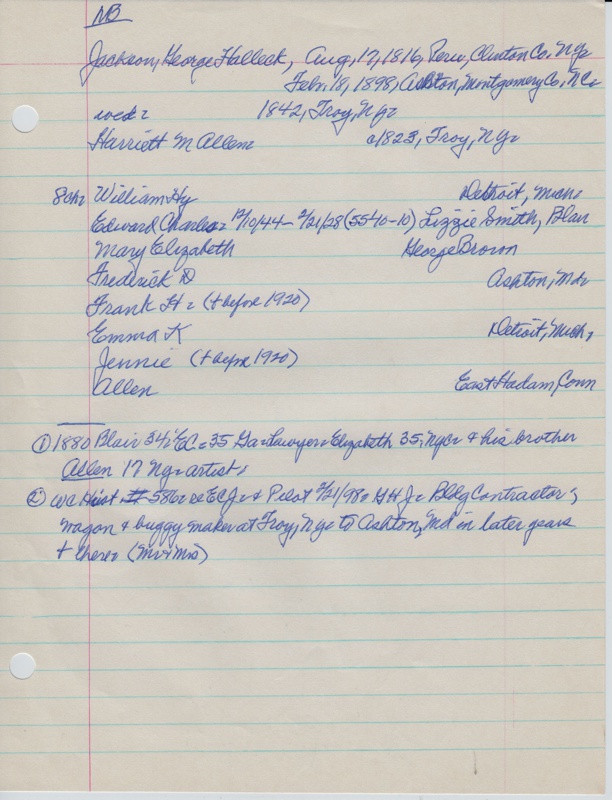 NB
Jackson, George Halleck, Aug, 17, 1816, Peru, Clinton Co. Ny=
Feb. 18, 1898, Ashton, Montgomery Co, NC=
wed= 1842, Troy, Ny=
Harriett M Allen= c1823, Troy, Ny=
8ch= William Hy Detroit, Mich=
Edward Charles= 12/10/44- 2/21/28 (5540-10) Lizzie Smith, Blair
Mary Elizabeth George Brown
Frederick D Ashton, Md=
Frank H= (+ before 1920)
Emma K Detroit, Mich=
Jennie (+ before 1920)
Allen East Hadam, Conn
① 1880 Blair 34; EC= 35 Ga= Lawyer= Elizabeth 35, Nyc= & his brother
Allen 17 Ny= artist=
② Wa Hist # 586= re ECJ= & Pilot 2/21/98= GHJ= Bldg Contractor;
wagon & buggy maker at Troy, Ny= to Ashton, Md in later years
+ there= (Mr & Mrs)